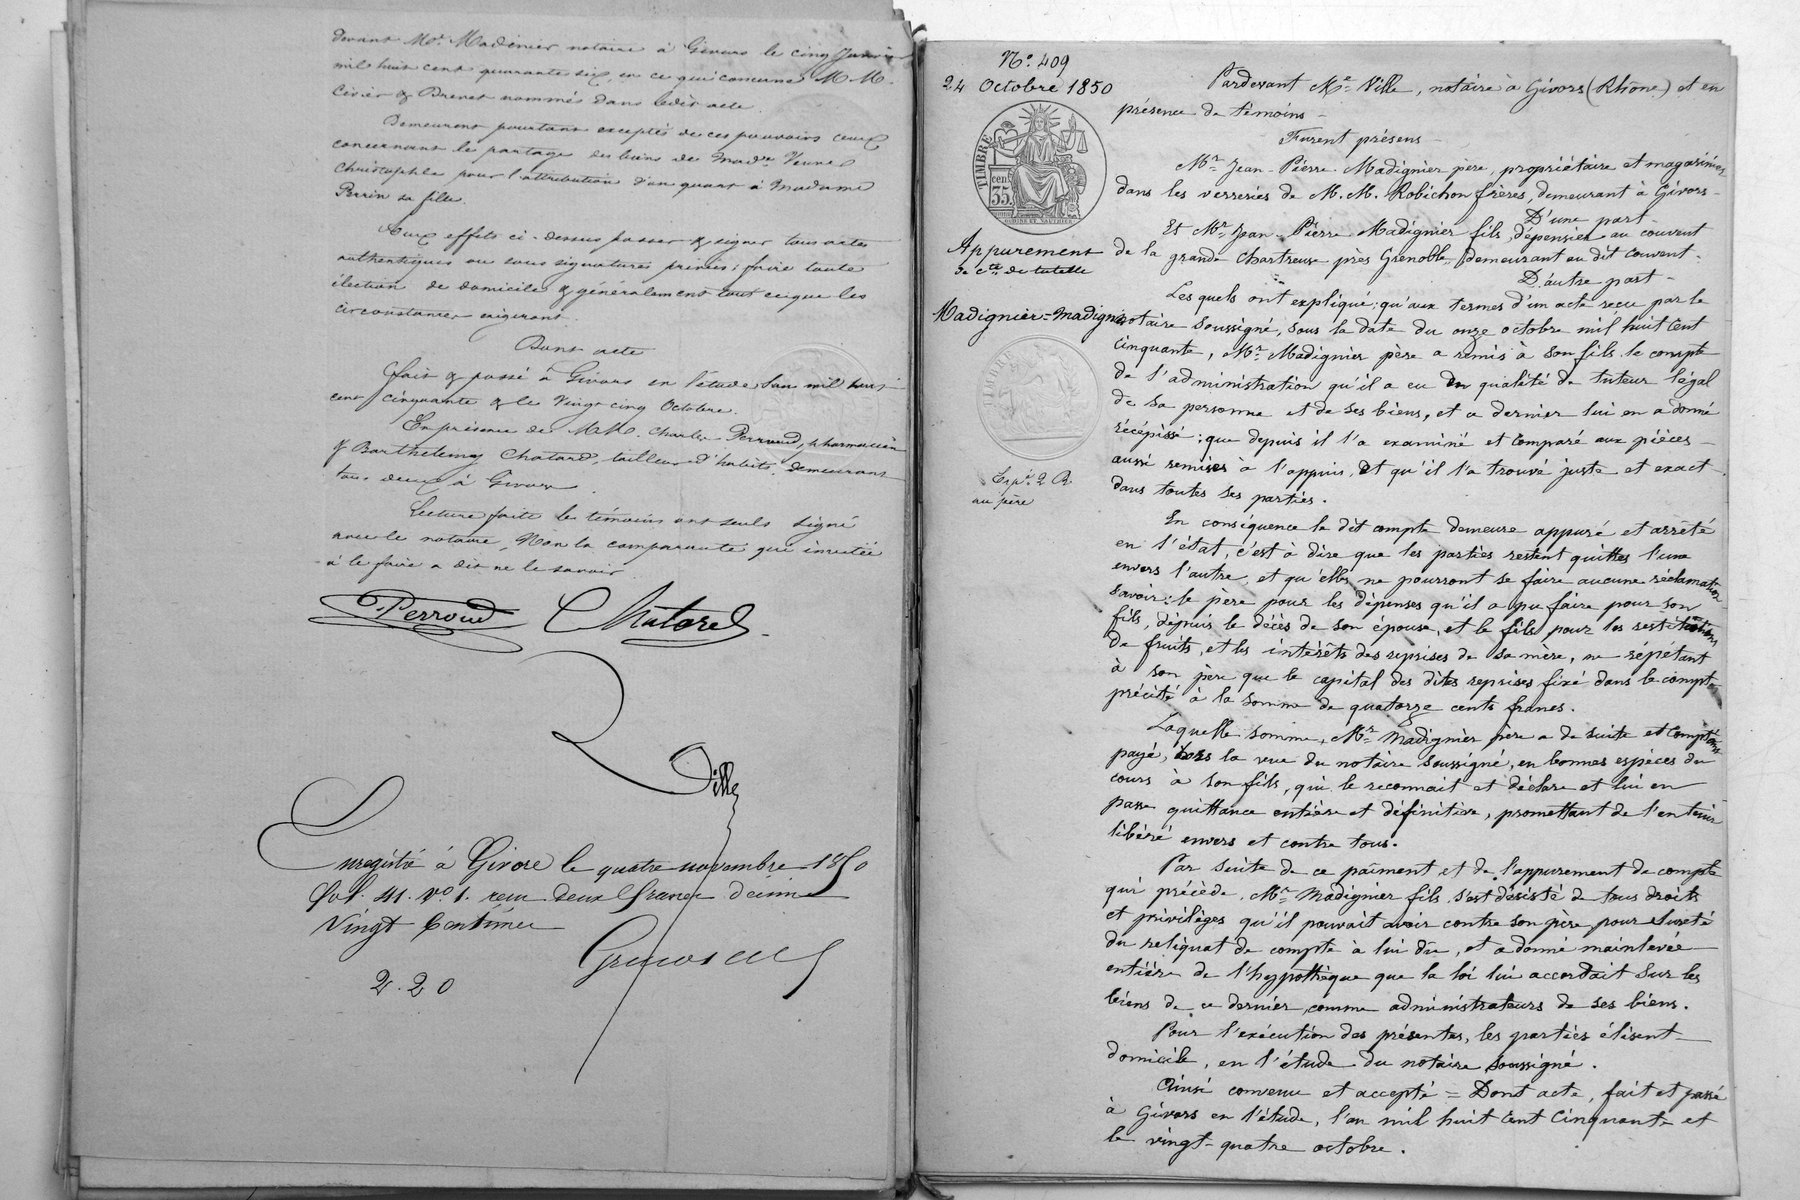 devant Me. Madinier notaire à Givors le cinq Janvier
mil huit cent quarante six, en ce qui concerne M.M.
Civier & Brenet nommés dans ledit acte.
Demeurent pourtant exceptés de ces pouvoirs ceux
concernant le partage des biens de Made Veuve
Christophle pour l'attribution d'un quart à Madame
Perrin sa fille.
Aux effets ci-dessus passer & signer tous actes
authentiques ou sous signatures privées; faire toute
élection de domicile & généralement tout ce que les
circonstances exigeront.
Dont acte
fait & passé à Givors en l'étude l'an mil huit
cent cinquante & le vingt cinq Octobre.
En présence de MM. Charles Perroud, pharmacien
& Barthelemy Chatard, tailleur d'habits, demeurant
tous deux à Givors.
Lecture faite les témoins ont seuls signé
avec le notaire, Non la comparante qui invitée
à le faire a dit ne le savoir.
Perroud Chatard
Ville
Enregistré à Givors le quatre novembre 1850
fol. 41. vo. 1. reçu deux francs décime
Vingt Centimes
2.20
No. 409
24 Octobre 1850
TIMBRE
cen.
35
Appurement
de cte de tutelle
Madignier=Madignier
TIMBRE
Expé. 2 R.
au père
Pardevant Me Ville, notaire à Givors (Rhône) et en
présence de témoins -
Furent présens -
Mr Jean-Pierre Madignier père, propriétaire et magasinier
dans les verreries de M.M. Robichon frères, demeurant à Givors -
D'une part -
Et Mr Jean-Pierre Madignier fils, dépensier au couvent
de la grande chartreuse près Grenoble, demeurant au dit couvent -
D'autre part -
Lesquels ont expliqué; qu'aux termes d'un acte reçu par le
notaire soussigné, sous la date du onze octobre mil huit cent
cinquante, Mr Madignier père a remis à son fils le compte
de l'administration qu'il a eu en qualité de tuteur légal
de sa personne et de ses biens, et a dernier lui en a donné
récépissé; que depuis il l'a examiné et comparé aux pièces -
aussi remises à l'appui, et qu'il l'a trouvé juste et exact -
dans toutes ses parties.
En conséquence le dit compte demeure appuré et arrêté
en l'état, c'est à dire que les parties restent quittes l'une
envers l'autre, et qu'elles ne pourront se faire aucune réclamation
savoir: le père pour les dépenses qu'il a pu faire pour son
fils, depuis le décès de son épouse, et le fils pour les restitutions
de fruits, et les intérêts des reprises de sa mère, ne répétant
à son père que le capital des dites reprises fixé dans le compte
précité à la somme de quatorze cents francs.
Laquelle somme, Mr Madignier père a de suite et comptant
payé, hors la vue du notaire soussigné, en bonnes espèces du
cours à son fils, qui le reconnait et déclare et lui en
passe quittance entière et définitive, promettant de l'en tenir
libéré envers et contre tous.
Par suite de ce paiment et de l'appurement de compte
qui précède, Mr Madignier fils s'est désisté de tous droits
et privilèges qu'il pouvait avoir contre son père pour sureté
du reliquat de compte à lui dû, et a donné mainlevée
entière de l'hypothèque que la loi lui accordait sur les
biens de ce dernier, comme administrateurs de ses biens.
Pour l'exécution des présentes, les parties élisent -
domicile, en l'étude du notaire soussigné.
Ainsi convenu et accepté = Dont acte, fait et passé
à Givors en l'étude, l'an mil huit cent cinquante et
le vingt-quatre octobre.